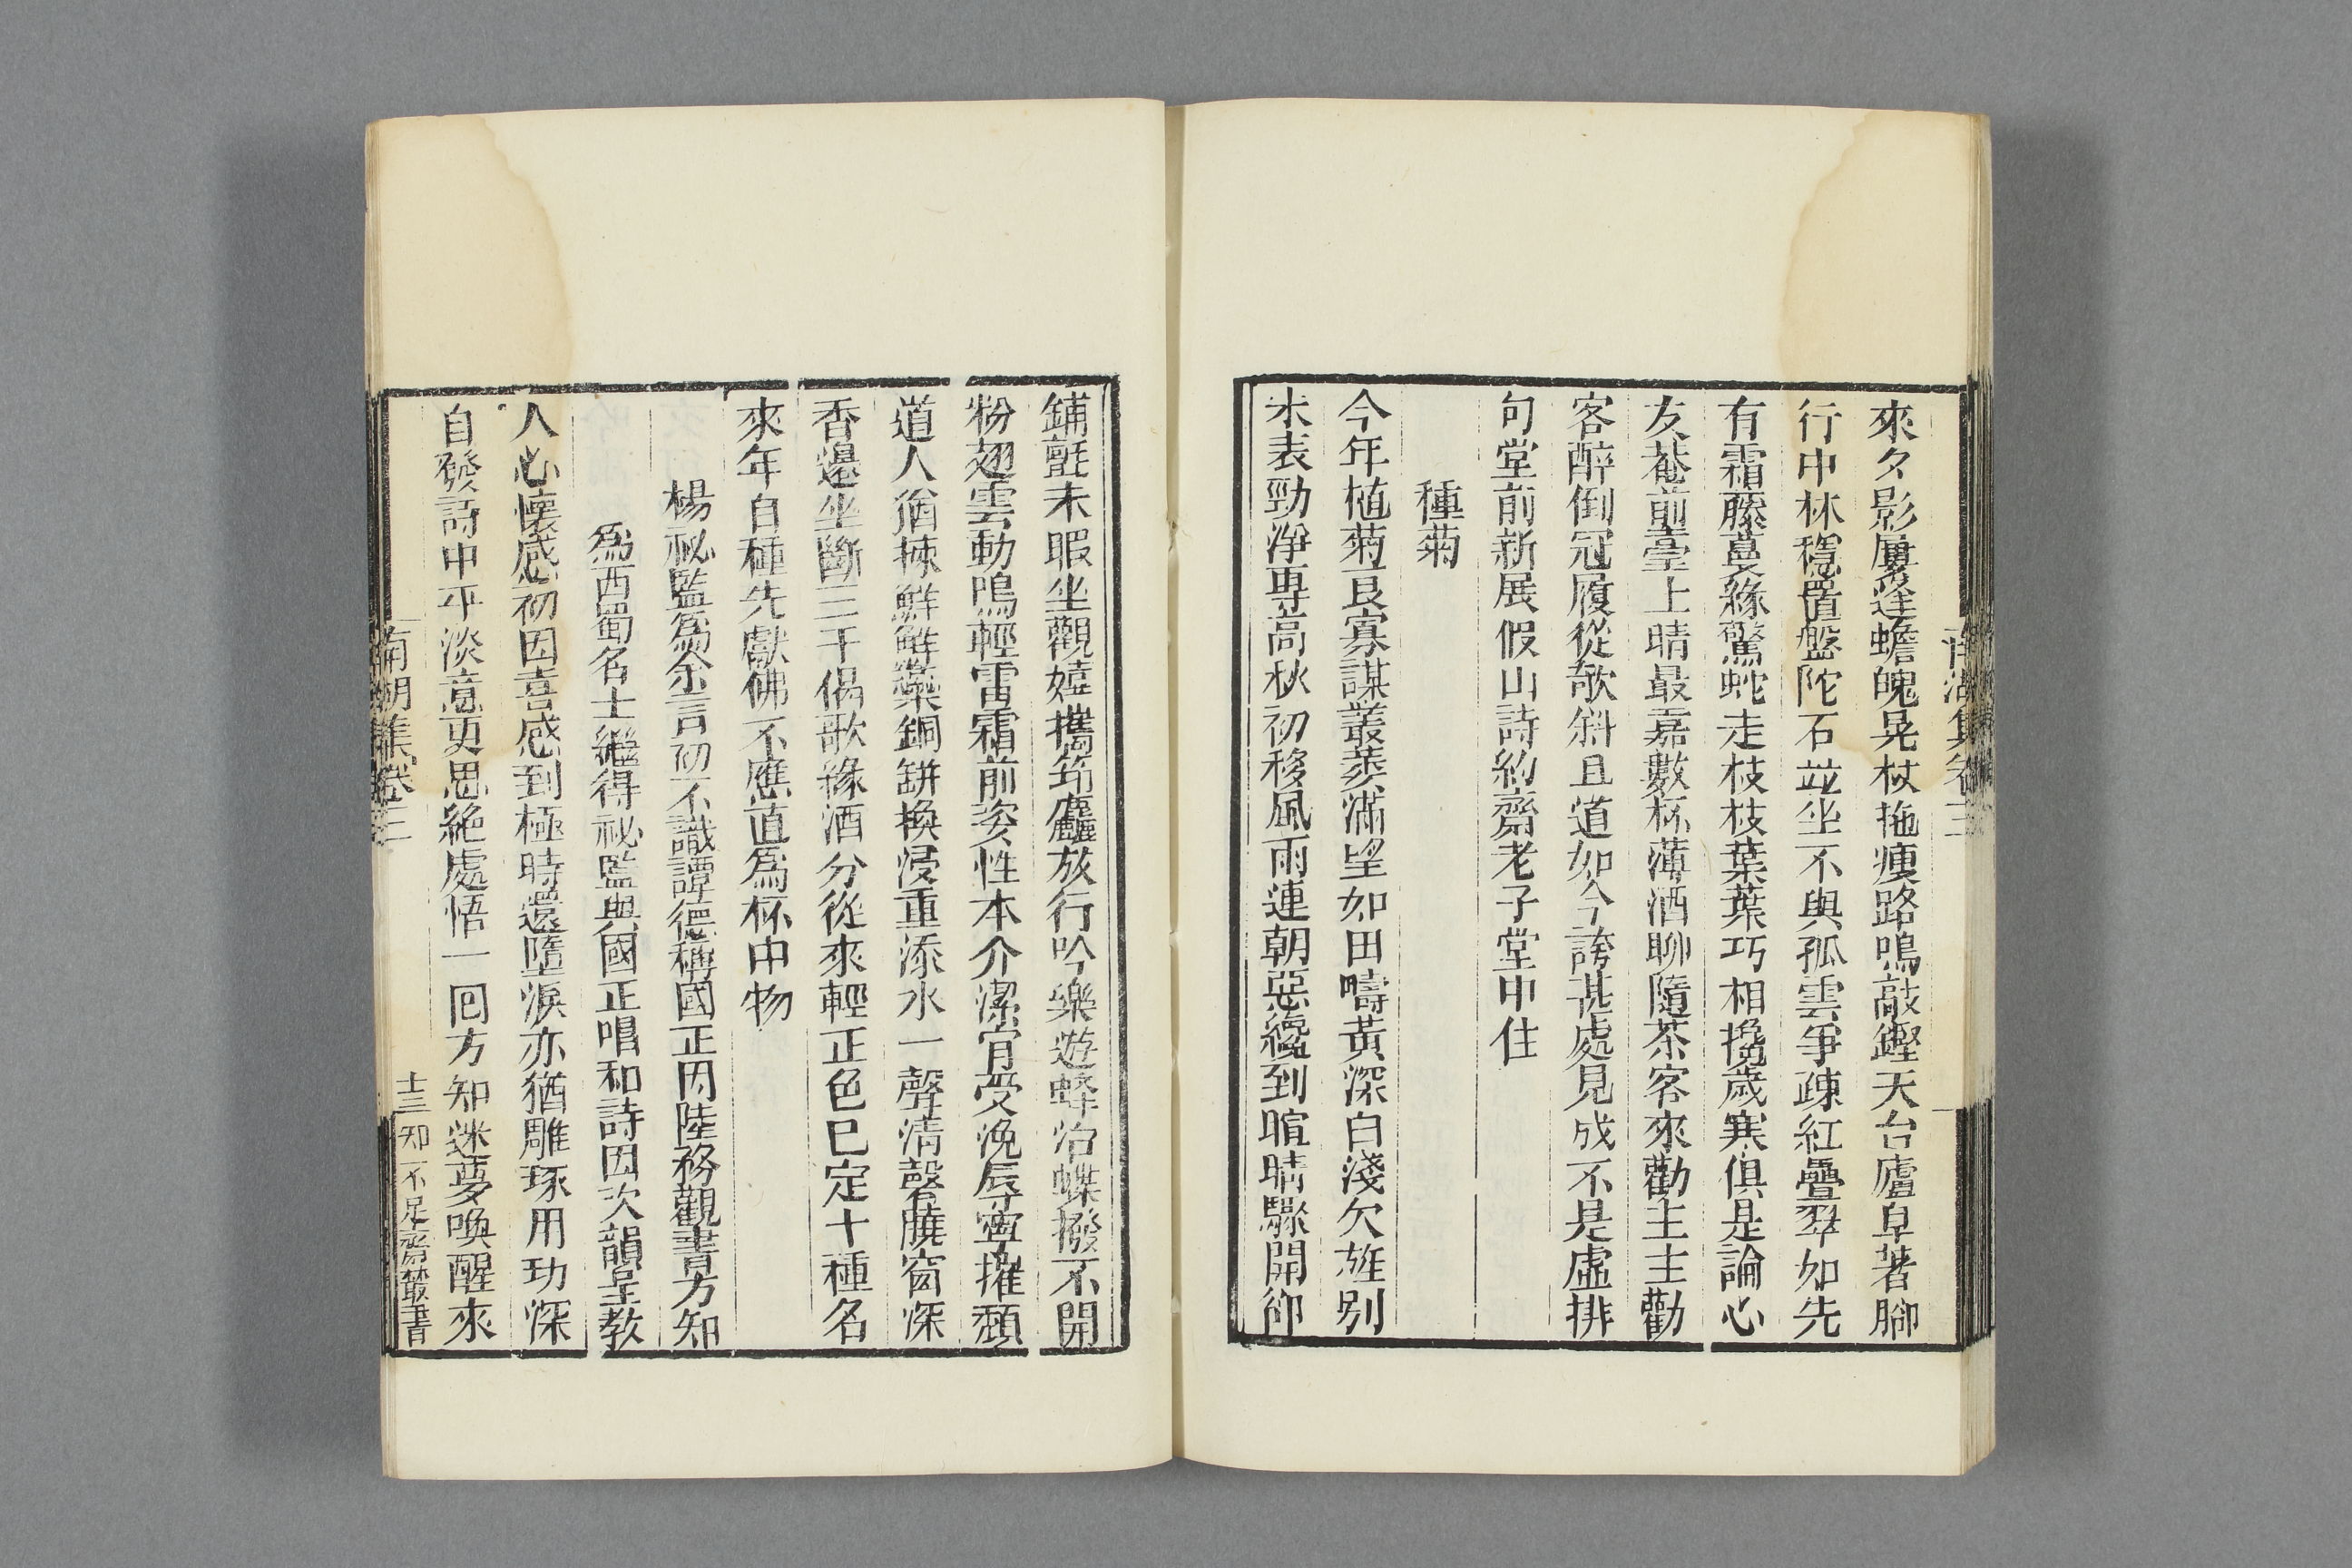 來夕影屢逢蟾魄晃杖拖痩路鳴敲鏗天台廬阜著腳
行中林穩置盤陀石並坐不與孤雲爭疎紅疊翠如先
有霜藤蔓緣驚蛇走枝枝葉葉巧相攙歲寒俱是論心
友菴前臺上晴最嘉數杯薄酒聊隨茶客來勸主主勸
客醉倒冠履從欹斜且道如今誇甚處見成不是虛排
句堂前新展假山詩約齋老子堂中住
種菊
今年植菊良寡謀叢葬滿望如田疇黃深白淺欠旌別
未表勁淨專高秋初移風雨連朝惡纔到暄晴驟開卻
鋪氈未暇坐觀嬉攜筇廳放行吟樂遊蜂冶蝶撥不開
粉翅雲動鳴輕雷霜前姿性本介潔肯受浼辱寧摧頽
道人猶揀鮮鮮蘂銅缾換浸重添水一聲清磬曉窗深
香邊坐斷三千偈歌緣酒分從來輕正色已定十種名
來年自種先獻佛不應直爲杯中物
楊祕監爲余言初不識譚德稱國正因陸務觀書方知
爲西蜀名士繼得祕監與國正唱和詩因次韻呈教
人心懷感初因喜感到極時還墮淚亦猶雕琢用功深
自發詩中平淡意更思絕處悟一囘方知迷夢喚醒來
南湖集卷三
十三 知不足齋叢書